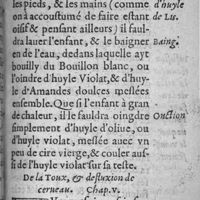 les pieds, & les mains (comme d'huyle
on a accoustumé de faire estant de Lis.
oisif & pensant ailleurs) il faul-
dra lauer l'enfant, & le baigner Baing.
en de l'eau, dedans laquelle ayt
bouilly du Bouillon blanc, ou
l'oindre d'huyle Violat, & d'huy-
le d'Amandes doulces meslées
ensemble. Que si l'enfant à gran
de chaleur, il le fauldra oingdre Onction
simplement d'huyle d'oliue, ou
d'huyle violat, meslée auec vn
peu de cire vierge, & couler auf-
si de l'huyle violat sur sa teste.
De la Toux, & defluxion de
cerueau. Chap. v.